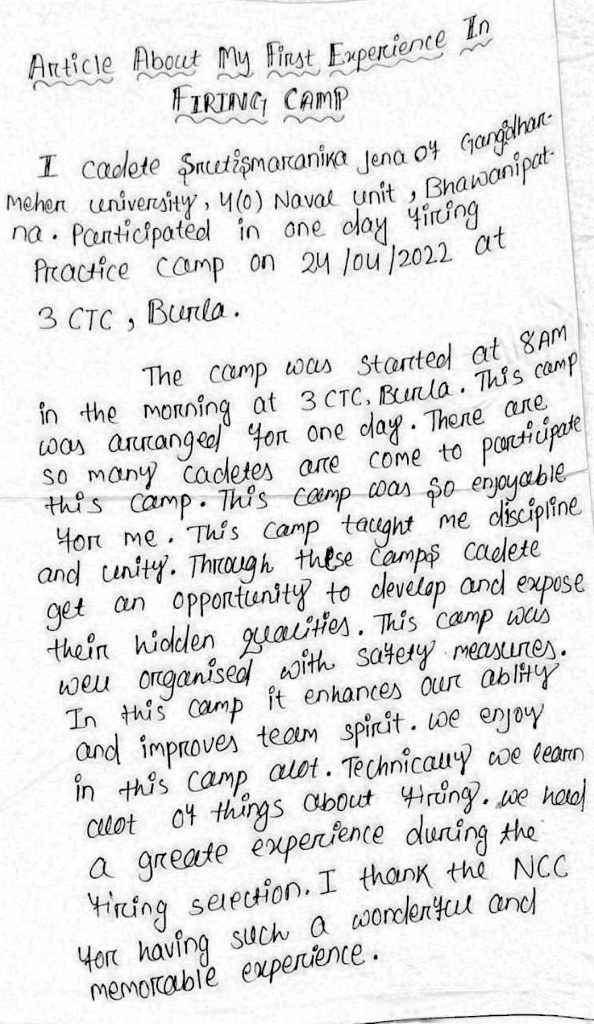 Article About My First Experience In
FIRING CAMP
I cadete Srutismaranika Jena of Gangdhar-
meher university, 4(O) Naval unit, Bhawanipat-
na. Participated in one day firing
Practice camp on 24/04/2022 at
3 CTC, Burla.
The camp was started at 8AM
in the morning at 3 CTC, Burla. This camp
was arranged for one day. There are
so many cadetes are come to participate
this camp. This camp was so enjoyable
for me. This camp taught me discipline
and unity. Through these camps cadete
get an opportunity to develop and expose
their hidden qualities. This camp was
well organised with safety measures.
In this camp it enhances our ablity
and improves team spirit. we enjoy
in this camp alot. Technically we learn
alot of things about firing. we had
a greate experience during the
firing selection. I thank the NCC
for having such a wonderful and
memorable experience.